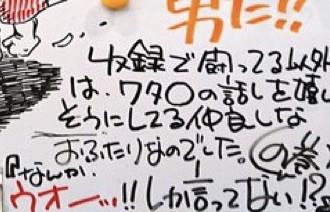 男だ!!
収録で闘ってる以外
は、ワタ○の話しを嬉し
そうにしてる仲良しな
おふたりなのでした。
の巻
『なんか、
ウオーッ…!!しか言ってない!?